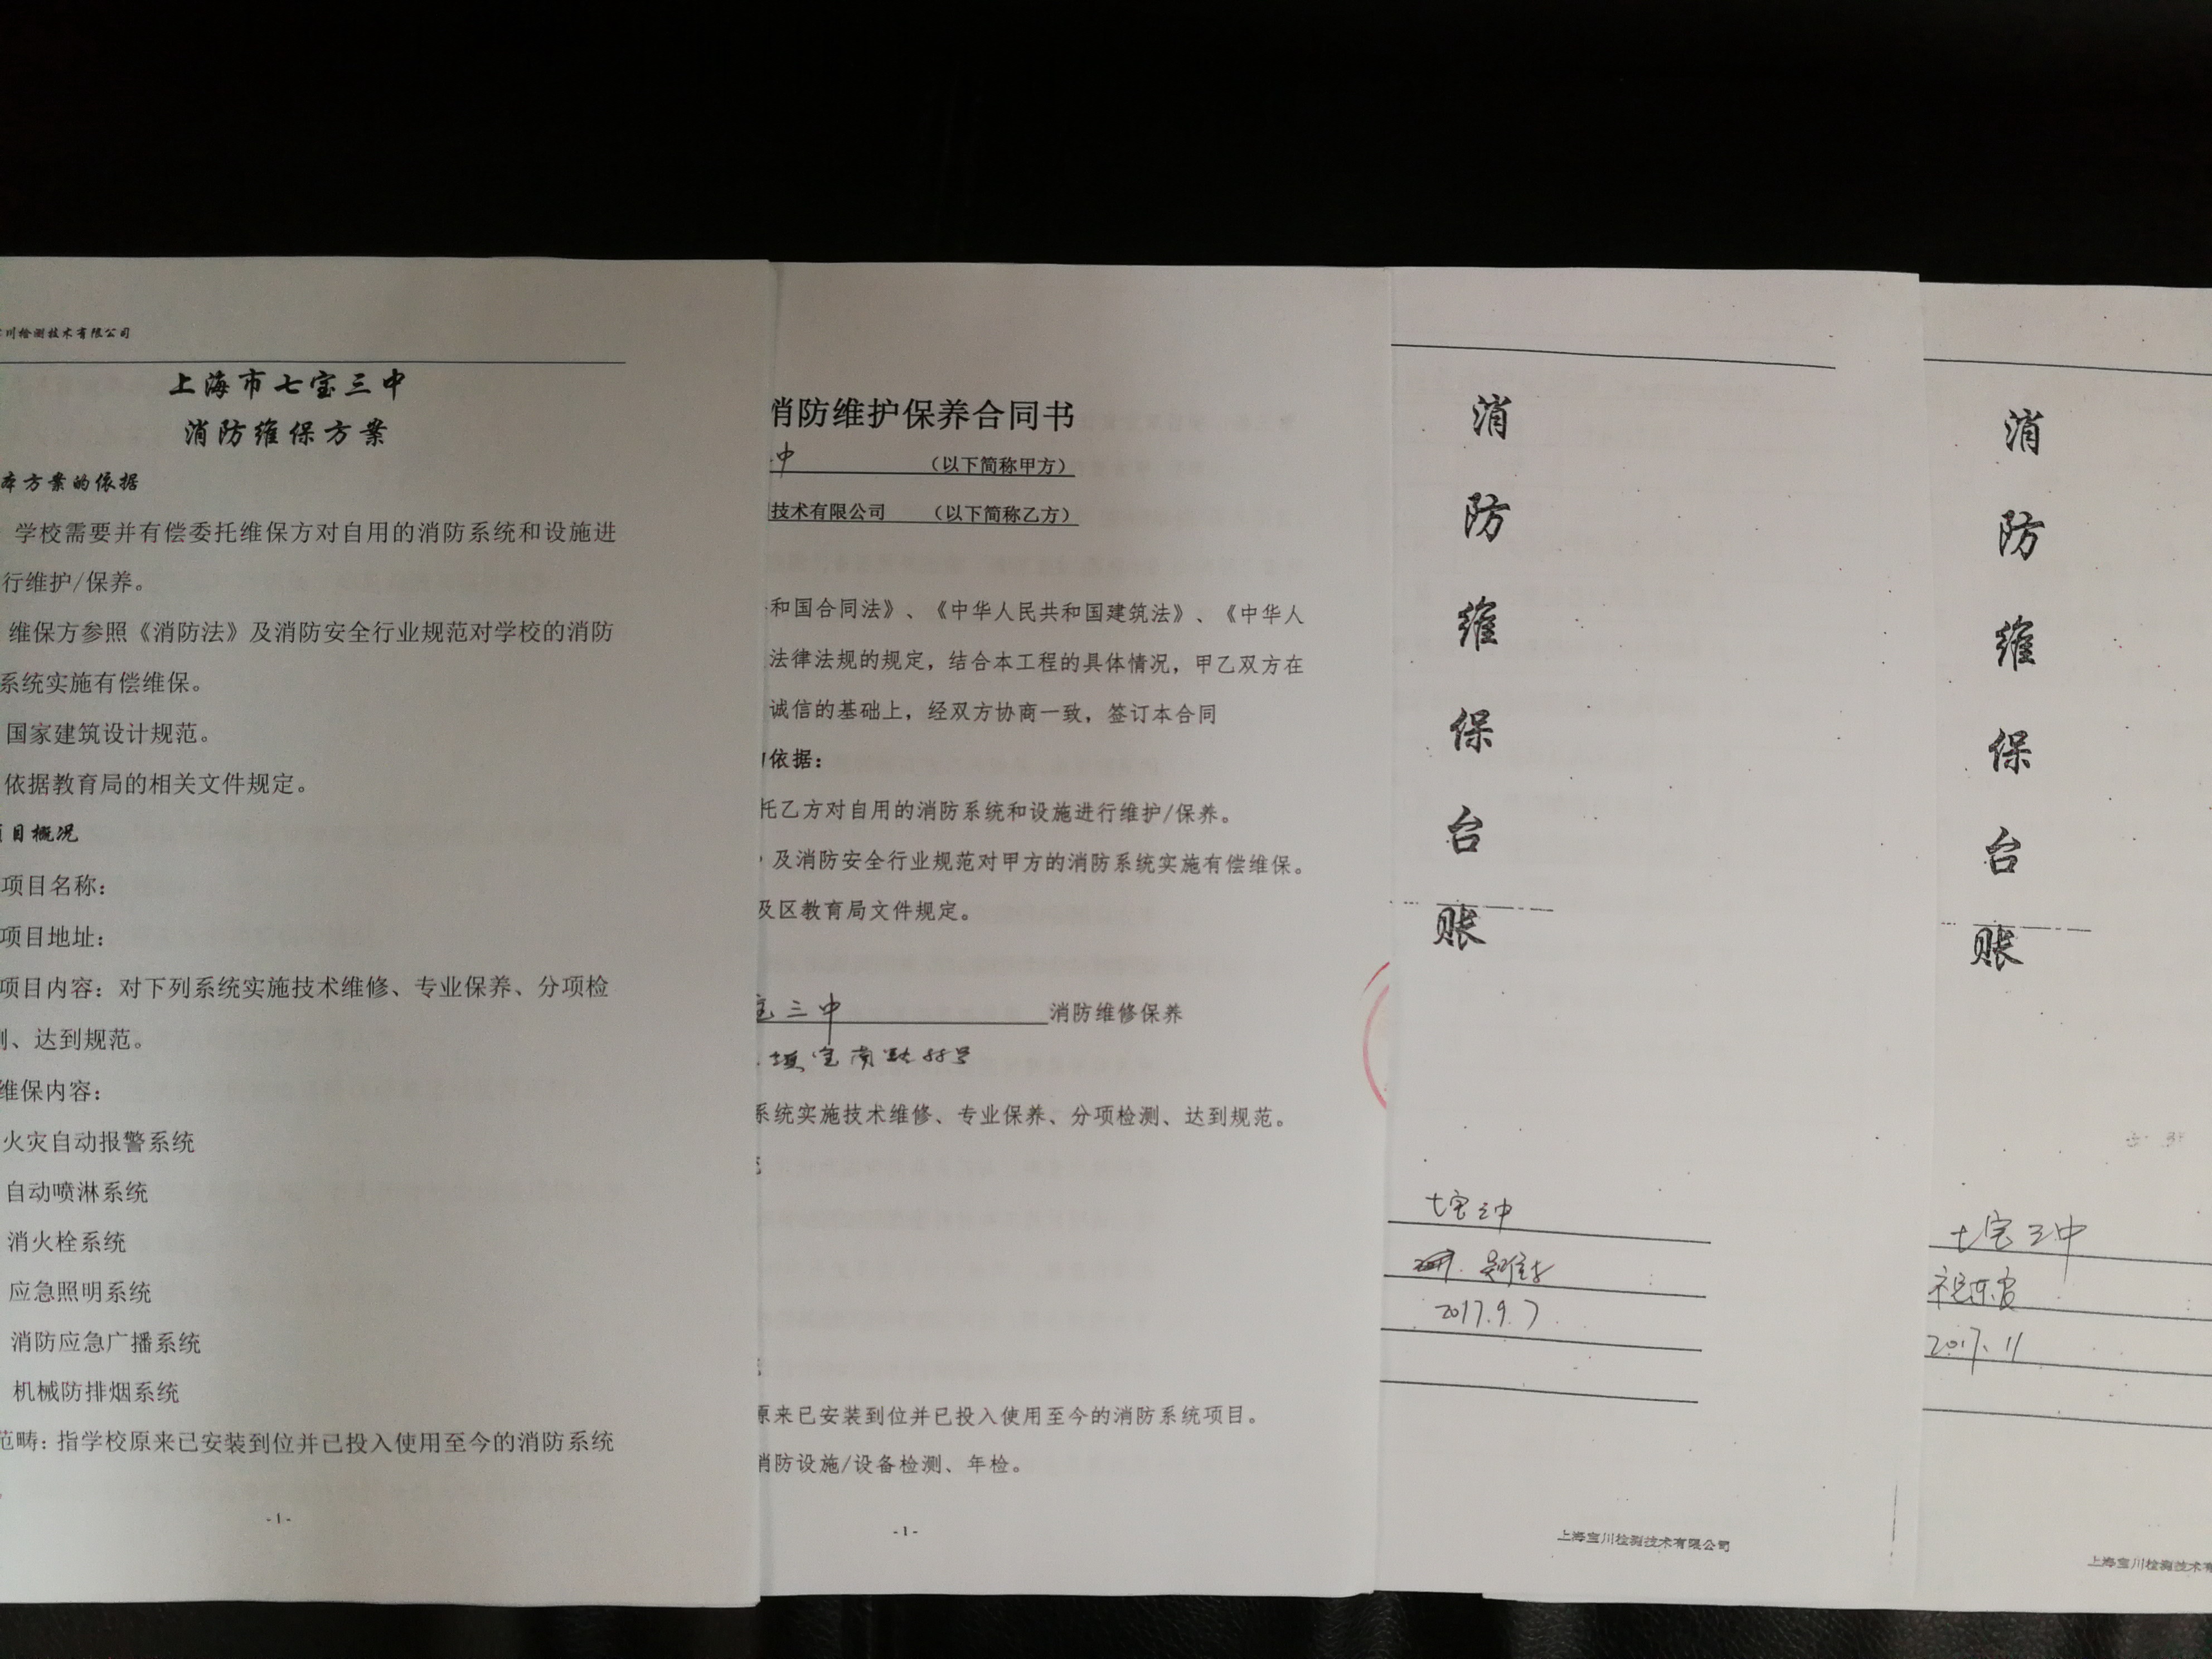 川检测技术有限公司
上海市七宝三中
消防维保方案
本方案的依据
学校需要并有偿委托维保方对自用的消防系统和设施进
行维护/保养。
维保方参照《消防法》及消防安全行业规范对学校的消防
系统实施有偿维保。
国家建筑设计规范。
依据教育局的相关文件规定。
项目概况
项目名称:
项目地址:
项目内容: 对下列系统实施技术维修、专业保养、分项检
测、达到规范。
维保内容:
火灾自动报警系统
自动喷淋系统
消火栓系统
应急照明系统
消防应急广播系统
机械防排烟系统
范畴: 指学校原来已安装到位并已投入使用至今的消防系统
-1-
消防维护保养合同书
中 (以下简称甲方)
技术有限公司 (以下简称乙方)
和国合同法》、《中华人民共和国建筑法》、《中华人
法律法规的规定，结合本工程的具体情况，甲乙双方在
诚信的基础上，经双方协商一致，签订本合同
依据:
托乙方对自用的消防系统和设施进行维护/保养。
及消防安全行业规范对甲方的消防系统实施有偿维保。
及区教育局文件规定。
宝三中 消防维修保养
镇宝南路88号
系统实施技术维修、专业保养、分项检测、达到规范。
原来已安装到位并已投入使用至今的消防系统项目。
消防设施/设备检测、年检。
-1-
消防维保台账
七宝三中
2017.9.7
上海宝川检测技术有限公司
消防维保台账
七宝三中
2017.11
上海宝川检测技术有